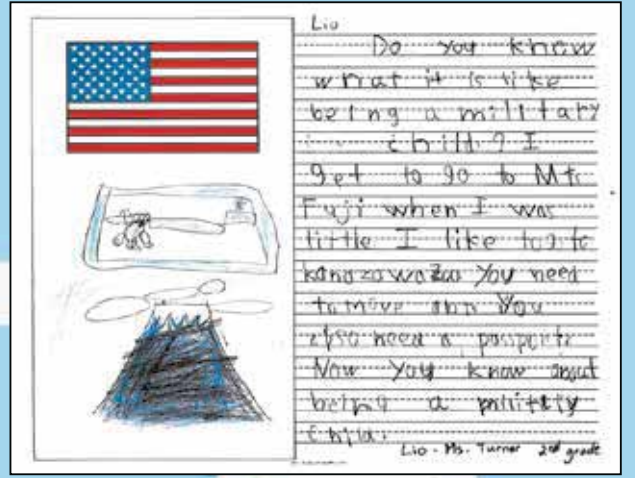 Lio
Do you know
what it is like
being a military
child? I
get to go to Mt.
Fuji when I was
little I like to go to
kanazawa zoo You need
to move and You
also need a passport.
Now You know about
being a military
child.
Lio - Ms. Turner 2nd grade